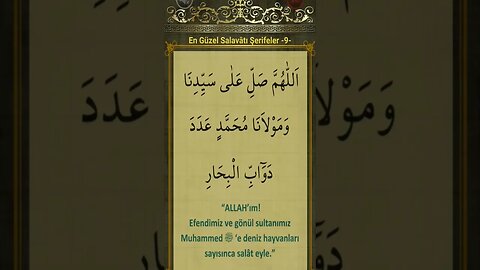 En Güzel Salavâtı Şerifeler -9-
اَللّٰهُمَّ صَلِّ عَلٰى سَيِّدِنَا
وَمَوْلَانَا مُحَمَّدٍ عَدَدَ
دَوَآبِّ الْبِحَارِ
“ALLAH’ım!
Efendimiz ve gönül sultanımız
Muhammed ﷺ ‘e deniz hayvanları
sayısınca salât eyle.”